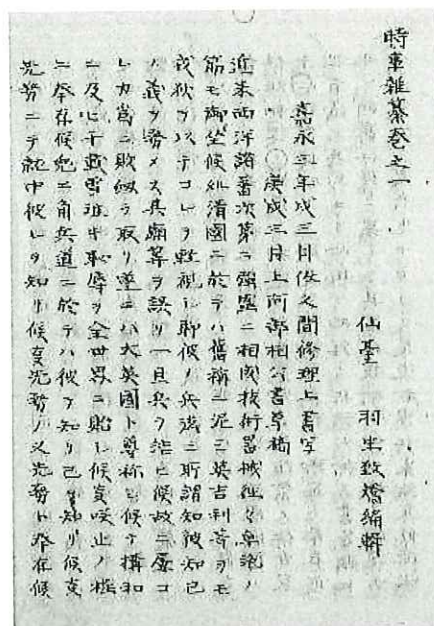 時事雜纂卷之一
仙臺 羽生致矯編輯
嘉永三年戌三月佐久間修理上書写
庚戌三月上阿部相公書草稿
近来西洋諸蕃次第ニ強盛ニ相成技術器械往々卓絶ノ
筋モ御坐候処清國ニ於テハ舊称ニ泥ミ英吉利等ヲモ
戎狄ヲ以テコレヲ軽視シ聊彼ノ兵残ニ所謂知彼知己
ノ義ヲ務メス其廟算等ヲ誤リ一旦兵ヲ結ヒ候故ニ屡コ
レカ為ニ敗衂ヲ取リ遂ニハ大英國ト尊称シ候テ構和
ニ及ヒ千載雪難キ恥辱ヲ全世界ニ貽シ候真咲止ノ極
ニ奉存候兎ニ角兵道ニ於テハ彼ヲ知リ己ヲ知リ候支
先努ニテ就中彼レヲ知リ候支先務ノ又先務ト奉存候